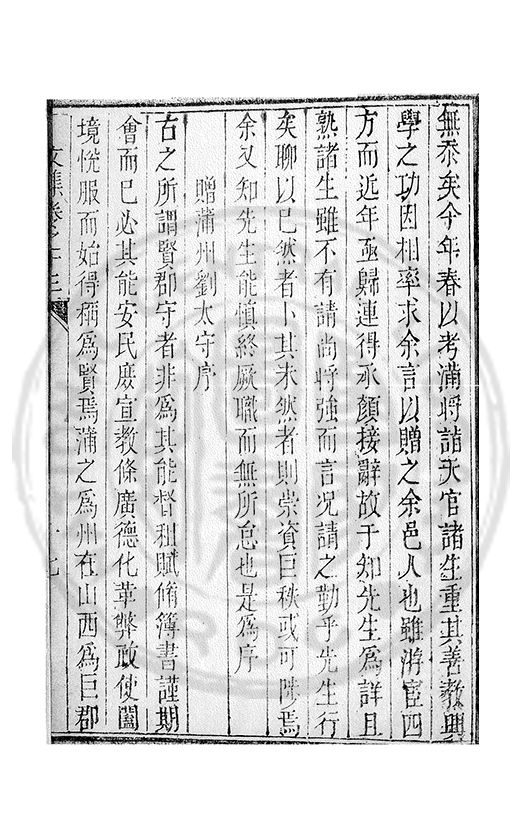 無忝矣今年春以考滿將詣天官諸生重其善教興
學之功因相率求余言以贈之余邑人也雖游宦四
方而近年亟歸連得承顏接辭故于知先生爲詳且
熟諸生雖不有請尚將強而言况請之勤乎先生行
矣聊以已然者卜其未然者則崇資巨秩或可陟焉
余又知先生能慎終厥職而無所怠也是爲序
贈蒲州劉太守序
古之所謂賢郡守者非爲其能督租賦脩簿書謹期
會而已必其能安民庶宣教條廣德化革弊政使闔
境悅服而始得稱爲賢焉蒲之爲州在山西爲巨郡
文集卷之十三
十七